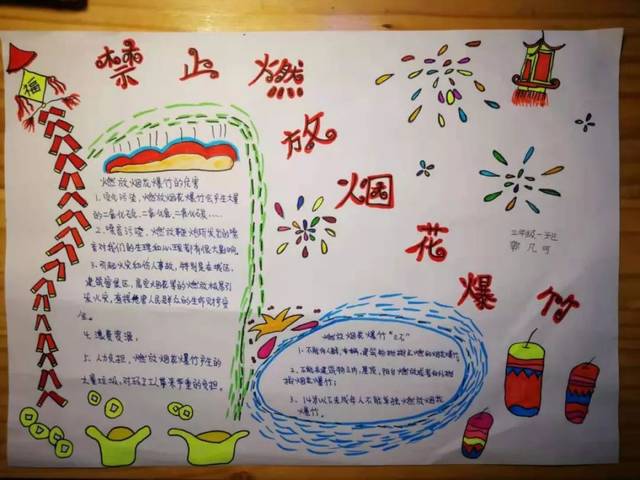 禁止燃放烟花爆竹
福
二年级一班
郭凡可
燃放烟花爆竹的危害
1、空气污染，燃放烟花爆竹会产生大量
的二氧化硫、二氧化氮、二氧化碳……
2、噪音污染，燃放鞭炮所发出的噪
音对我们的生理和心理都有很大影响。
3、引起火灾和伤人事故，特别是在城区，
建筑密集区，高空烟花等的燃放极易引
发火灾，直接危害人民群众的生命财产安
全。
4、浪费资源，
5、人力负担，燃放烟花爆竹产生的
大量垃圾，对环卫工人带来严重的负担。
燃放烟花爆竹"三不"
1、不能向人群、车辆、建筑物抛掷点燃的烟花爆竹。
2、不能在建筑物上的、屋顶、阳台燃放或者向外抛
掷烟花爆竹；
3、14岁以下未成年人不能单独燃放烟花爆
竹。